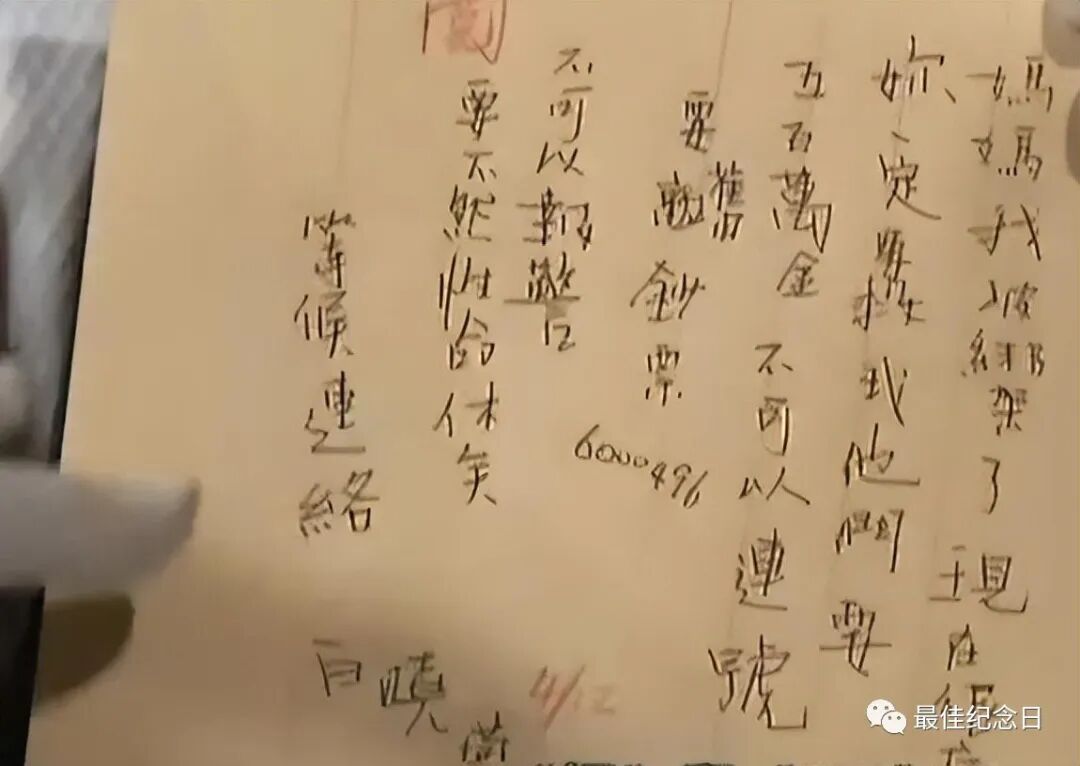 媽媽我被綁架了現在很痛
妳一定要救我他們要
五百萬金 不可以連號
要舊鈔票
6000496
不可以報警
要不然性命休矣
等候連絡
白曉
4/12
最佳纪念日